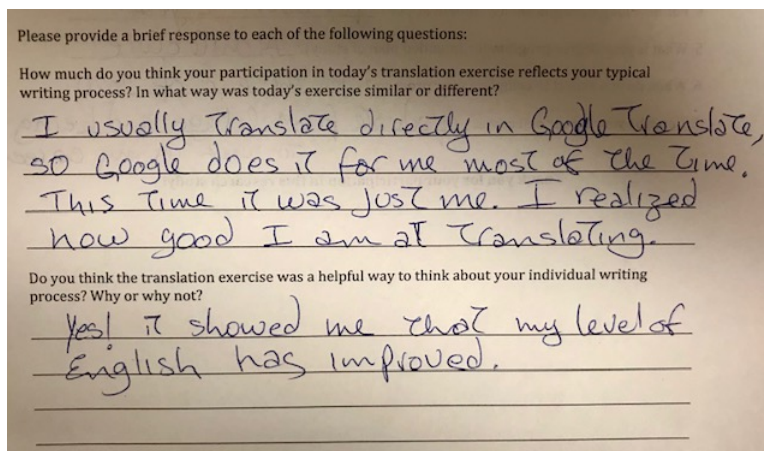 Please provide a brief response to each of the following questions:
How much do you think your participation in today's translation exercise reflects your typical
writing process? In what way was today's exercise similar or different?
I usually Translate directly in Google Translate,
so Google does iT for me most of the Time.
This Time iT was just me. I realized
how good I am at Translating.
Do you think the translation exercise was a helpful way to think about your individual writing
process? Why or why not?
Yes! iT showed me that my level of
English has improved.